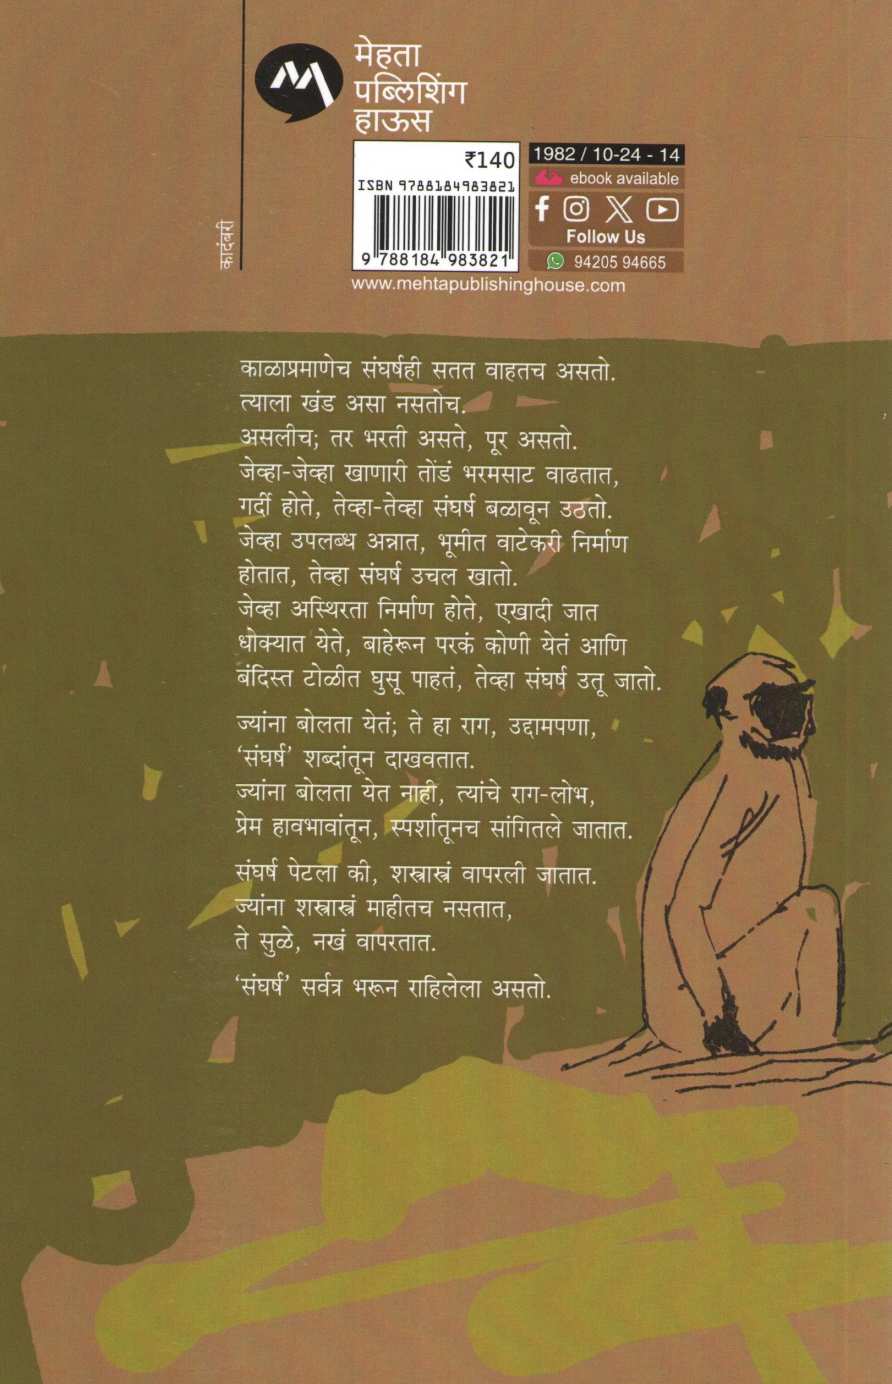 मेहता
पब्लिशिंग
हाऊस
₹140
ISBN 9788184983821
9 788184 983821
1982 / 10-24 - 14
ebook available
Follow Us
94205 94665
www.mehtapublishinghouse.com
कादंबरी
काळाप्रमाणेच संघर्षही सतत वाहतच असतो.
त्याला खंड असा नसतोच.
असलीच; तर भरती असते, पूर असतो.
जेव्हा-जेव्हा खाणारी तोंडं भरमसाट वाढतात,
गर्दी होते, तेव्हा-तेव्हा संघर्ष बळावून उठतो.
जेव्हा उपलब्ध अन्नात, भूमीत वाटेकरी निर्माण
होतात, तेव्हा संघर्ष उचल खातो.
जेव्हा अस्थिरता निर्माण होते, एखादी जात
धोक्यात येते, बाहेरून परकं कोणी येतं आणि
बंदिस्त टोळीत घुसू पाहतं, तेव्हा संघर्ष उतू जातो.
ज्यांना बोलता येतं; ते हा राग, उद्दामपणा,
‘संघर्ष’ शब्दांतून दाखवतात.
ज्यांना बोलता येत नाही, त्यांचे राग-लोभ,
प्रेम हावभावांतून, स्पर्शातूनच सांगितले जातात.
संघर्ष पेटला की, शस्त्रास्त्रं वापरली जातात.
ज्यांना शस्त्रास्त्रं माहीतच नसतात,
ते सुळे, नखं वापरतात.
‘संघर्ष’ सर्वत्र भरून राहिलेला असतो.